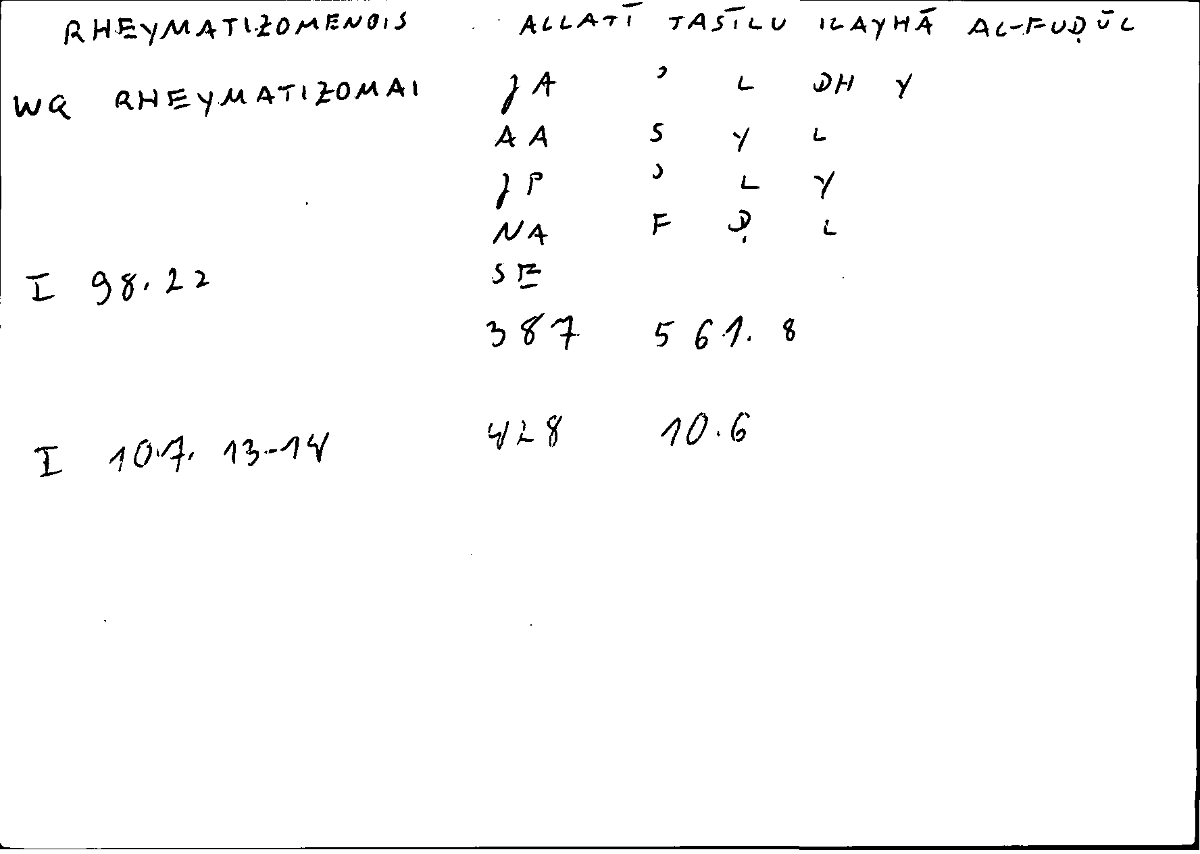 RHEYMATIZOMENOIS ALLATĪ TASĪLU ILAYHĀ AL-FUḌŪL
WQ RHEYMATIZOMAI JA ʾ L DH Y
AA S Y L
JP ʾ L Y
NA F Ḍ L
I 98.22 SE
387 561.8
I 107.13-14 428 10.6